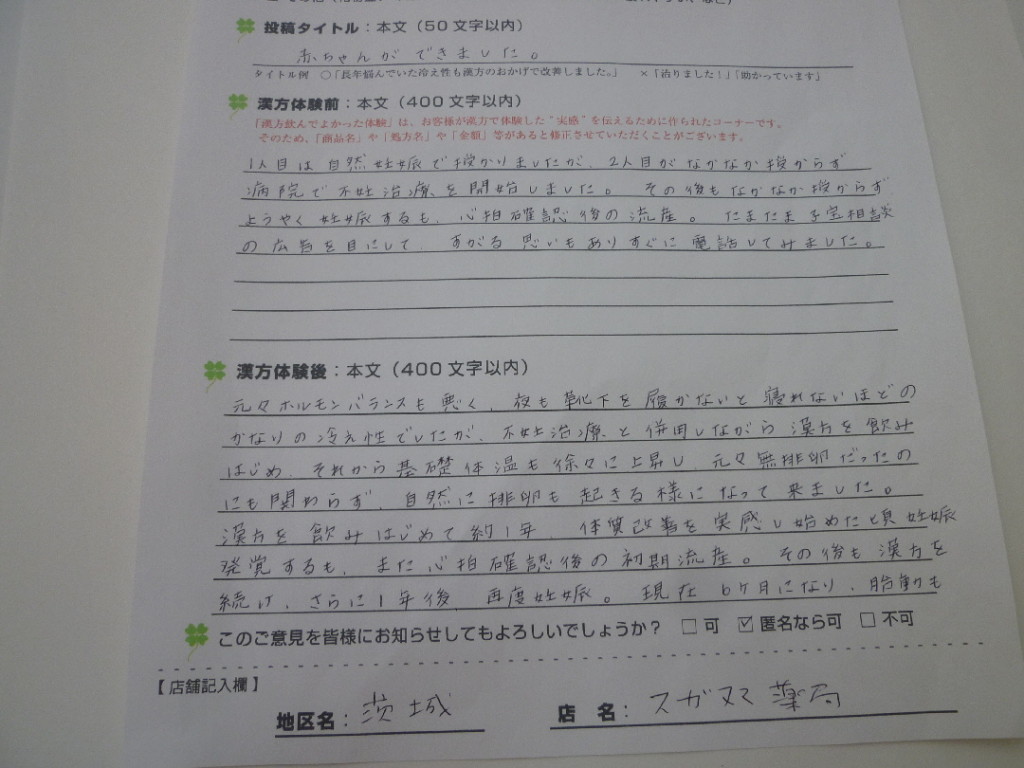 投稿タイトル：本文（50文字以内）
赤ちゃんができました。
タイトル例 ○「長年悩んでいた冷え性も漢方のおかげで改善しました。」 ×「治りました！」「助かっています」
漢方体験前：本文（400文字以内）
「漢方飲んでよかった体験」は、お客様が漢方で体験した“実感”を伝えるために作られたコーナーです。
そのため、「商品名」や「処方名」や「金額」等があると修正させていただくことがございます。
1人目は自然妊娠で授かりましたが、2人目がなかなか授からず
病院で不妊治療を開始しました。その後もなかなか授からず
ようやく妊娠するも、心拍確認後の流産。たまたま子宝相談
の広告を目にして、すがる思いもありすぐに電話してみました。
漢方体験後：本文（400文字以内）
元々ホルモンバランスも悪く、夜も靴下を履かないと寝れないほどの
かなりの冷え性でしたが、不妊治療と併用しながら漢方を飲み
はじめ、それから基礎体温も徐々に上昇し、元々無排卵だったの
にも関わらず、自然に排卵も起きる様になって来ました。
漢方を飲みはじめて約1年、体質改善を実感し始めた頃妊娠
発覚するも、また心拍確認後の初期流産。その後も漢方を
続け、さらに1年後、再度妊娠。現在6ヶ月になり、胎動も
このご意見を皆様にお知らせしてもよろしいでしょうか？ □可 ☑匿名なら可 □不可
【店舗記入欄】
地区名：茨城 店名：スガヌマ薬局